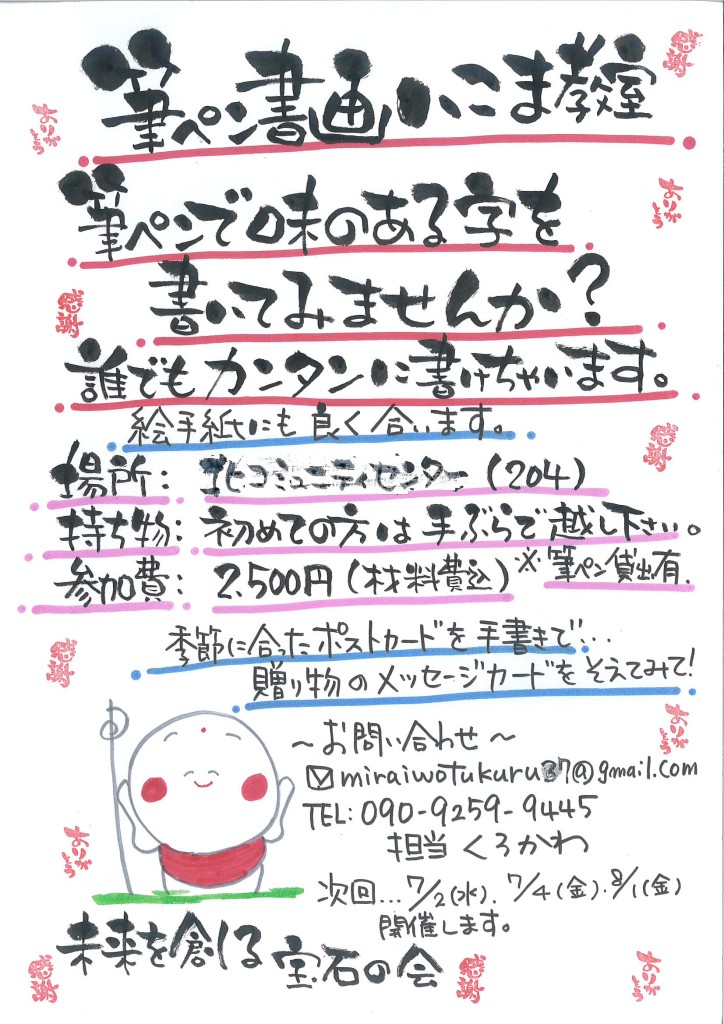 筆ペン書画いこま教室
筆ペンで味のある字を
書いてみませんか?
誰でもカンタンに書けちゃいます。
絵手紙にも良く合います。
場所: 北コミュニティセンター (204)
持ち物: 初めての方は手ぶらで越し下さい。
参加費: 2,500円(材料費込) ※筆ペン貸出有.
季節に合ったポストカードを手書きで...
贈り物のメッセージカードをそえてみて!
~お問い合わせ~
miraiwotukuru37@gmail.com
TEL: 090-9259-9445
担当 くろかわ
次回...7/2(水). 7/4(金). 8/1(金)
開催します。
未来を創る 宝石の会
感謝
ありがとう
ありがとう
感謝
感謝
感謝
ありがとう
ありがとう
感謝
感謝
ありがとう